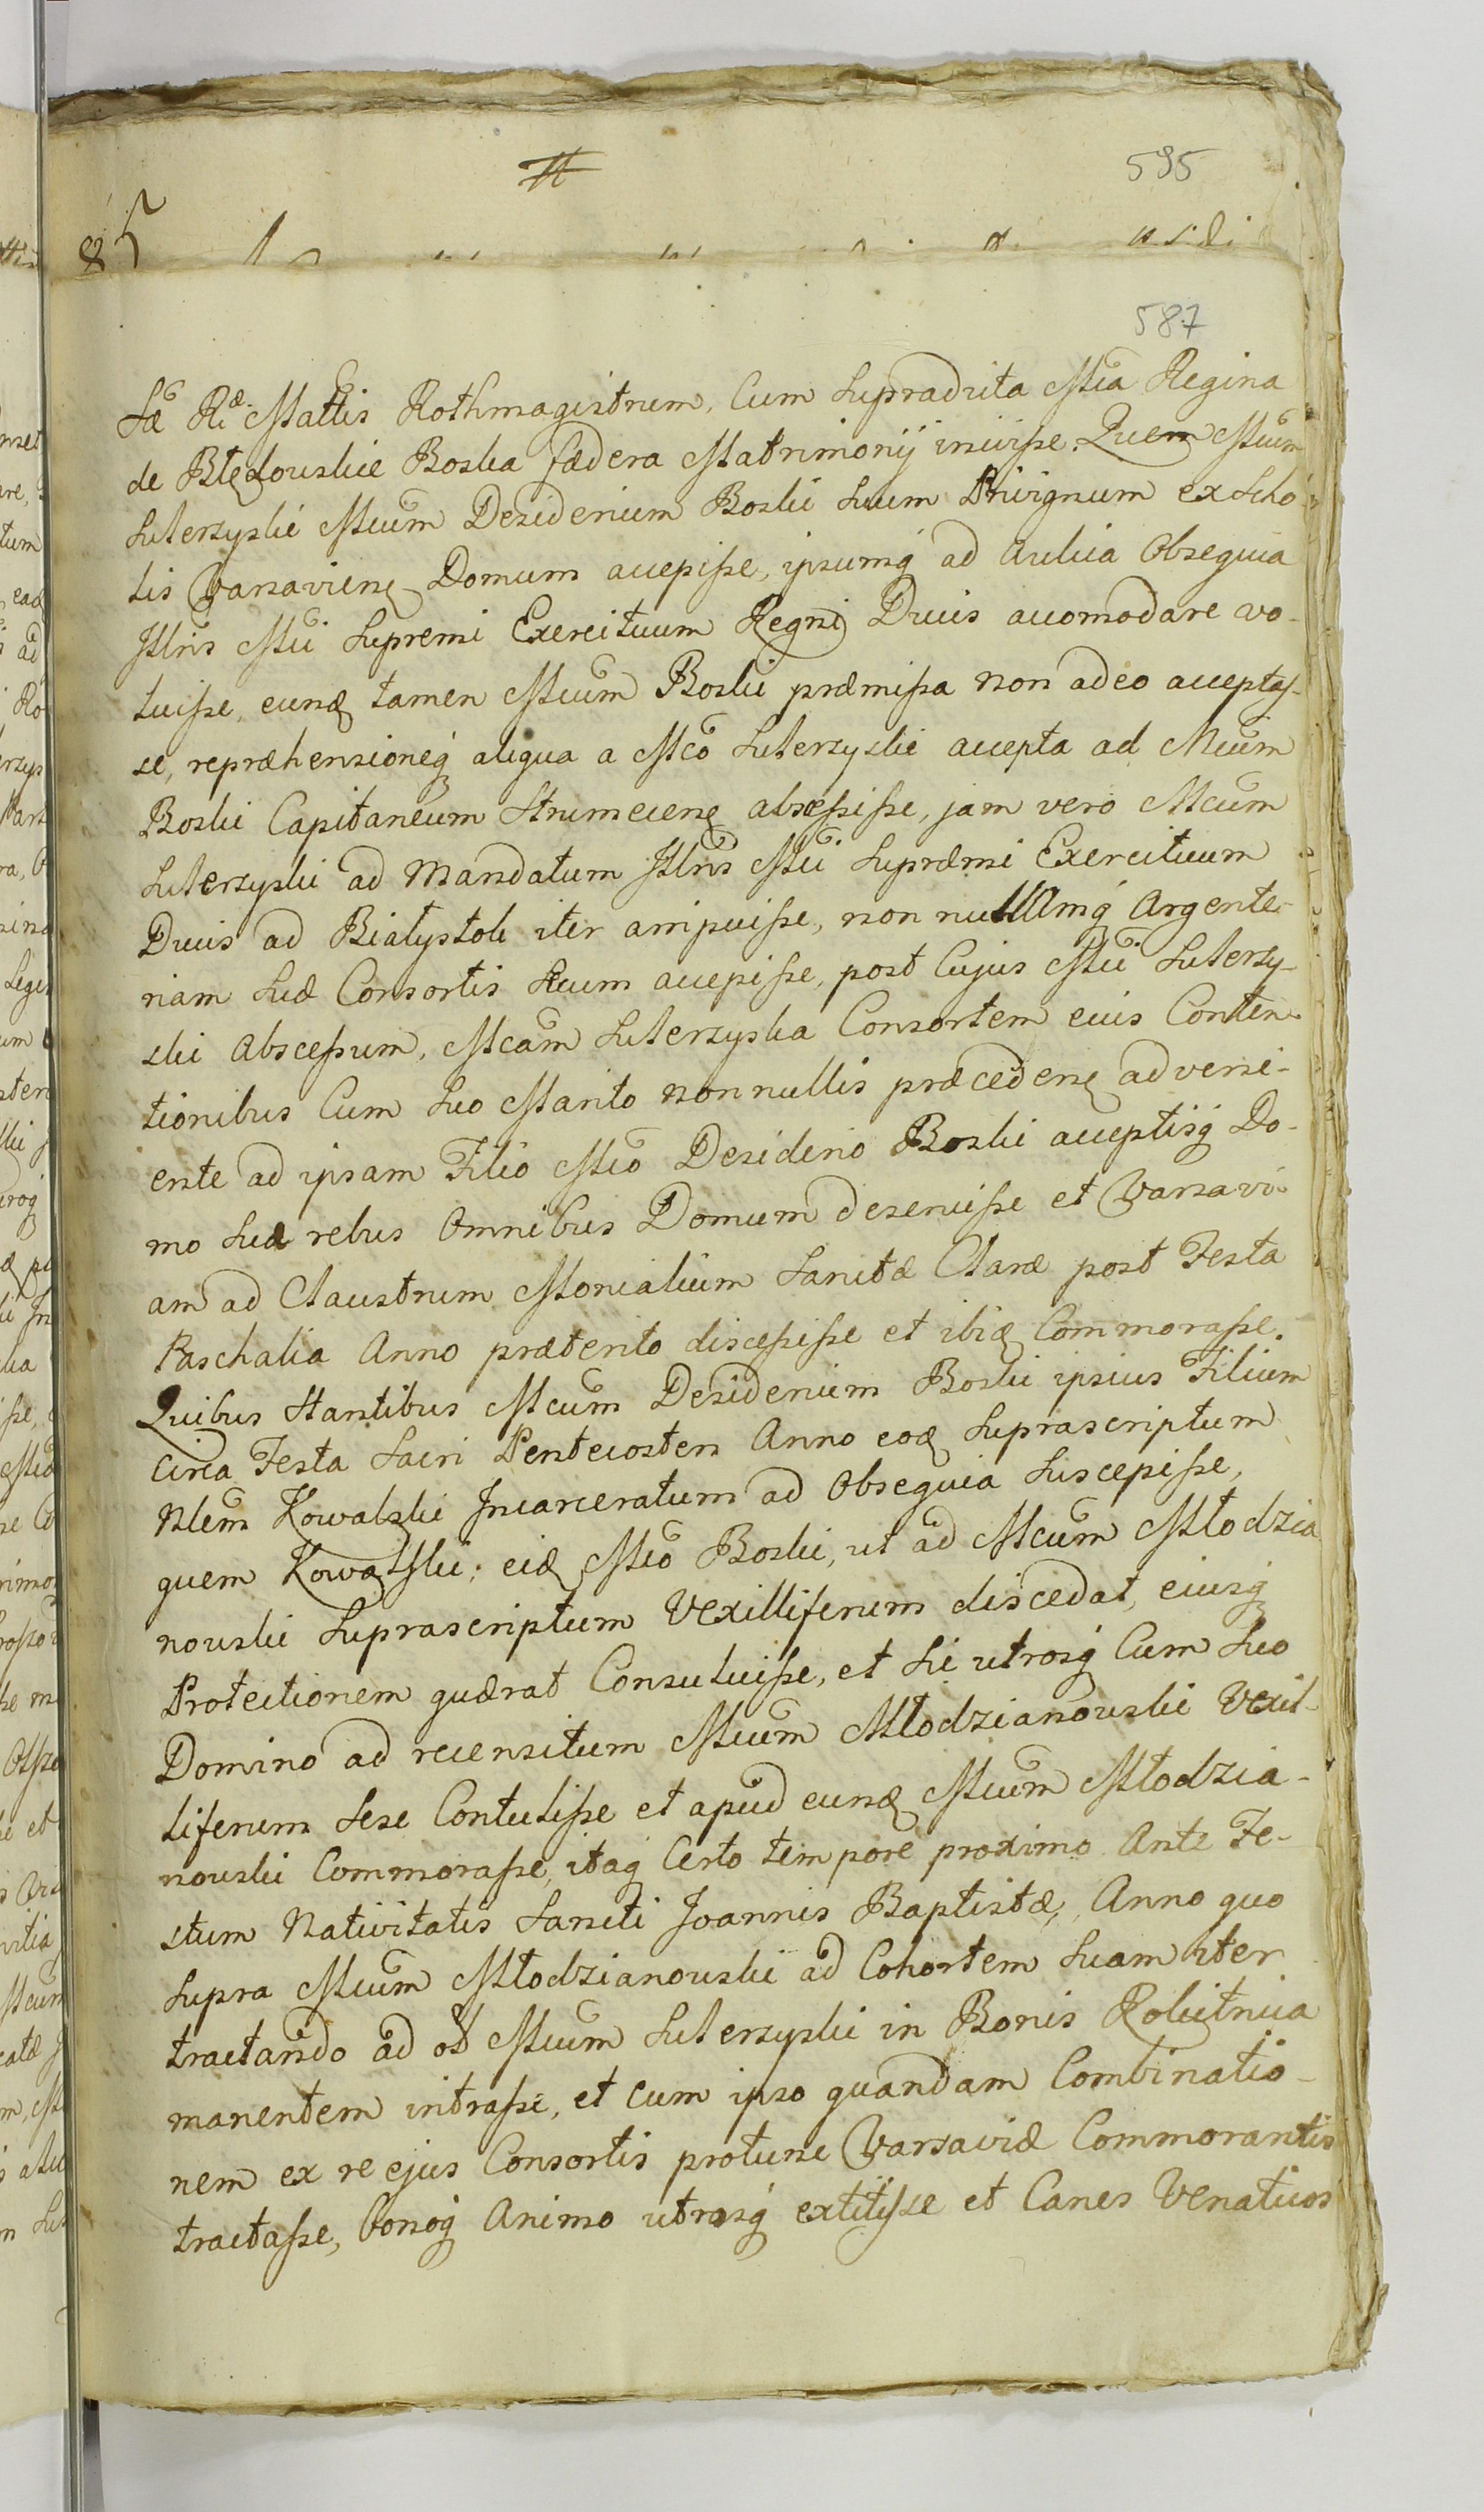 595
85
587
Sæ Ræ Mattis Rothmagistrum, Cum supradicta Mca Regina
de Błędowskie Boska fœdera Matrimonij inivisse. Quem Mcum
Suterzyski Mcum Desiderium Boski suum Privignum ex Scho
lis Varsaviens Domum accepisse, ipsumq ad Aulica Obsequia
Illris Mci Supremi Exercituum Regni Ducis accomodare vo-
luisse, eund tamen Mcum Boski præmissa non adeo acceptas-
se, repræhensioneq aliqua a Mco Suterzyski accepta ad Mcum
Boski Capitaneum Strumeciens abscessisse, jam vero Mcum
Suterzyski ad Mandatum Illris Mci Supræmi Exercituum
Ducis ad Białystok iter arripuisse, non nullAmq Argente-
riam Suæ Consortis Secum accepisse, post Cujus Mci Suterzy-
ski Abscessum, Mcam Suterzyska Consortem eius Conten-
tionibus Cum Suo Marito non nullis præcedens adveni-
ente ad ipsam Filio Mco Desiderio Boski acceptisq Do-
mo Sua rebus Omnibus Domum deseruisse et Varsavi-
am ad Claustrum Monialium Sanctæ Claræ post Festa
Paschalia Anno præterito discessisse et ibid Commorasse.
Quibus Stantibus Mcum Desiderium Boski ipsius Filium
Circa Festa Sacri Pentecosten Anno eod Suprascriptum
Nlem Kowalski Incarceratum ad Obsequia Suscepisse,
quem Kowalski; eid Mco Boski, ut ad Mcum Młodzia
nowski Suprascriptum Vexilliferum discedat, eiusq
Protectionem quærat Consuluisse, et Si utrosq Cum Suo
Domino ad recensitum Mcum Młodzianowski Vexil-
liferum Sese Contulisse et apud eund Mcum Młodzia-
nowski Commorasse, itaq Certo tempore proximo Ante Fe-
stum Nativitatis Sancti Joannis Baptistæ, Anno quo
Supra Mcum Młodzianowski ad Cohortem Suam iter
tractando ad Mcum Suterzyski in Bonis Rokitnica
manentem intrasse, et Cum ipso quandam Combinatio-
nem ex re ejus Consortis protunc Varsaviæ Commorantis
tractasse, bonoq Animo utrosq extitisse et Canes Venaticos